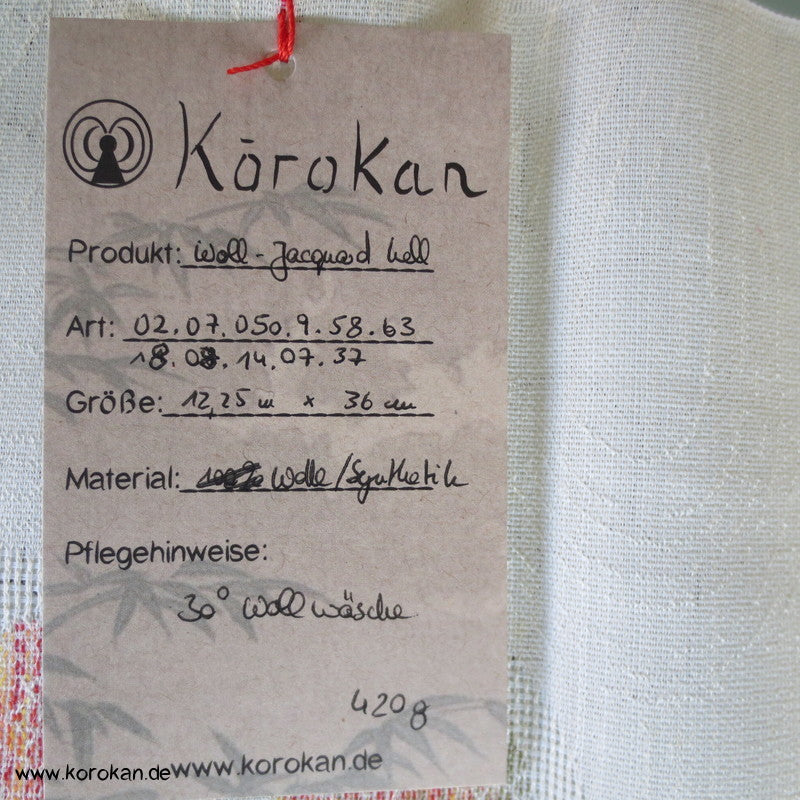 Kōrokan
Produkt: Woll-Jacquard hell
Art: 02.07.050.9.58.63
18.08.14.07.37
Größe: 12,25 m x 36 cm
Material: 100% Wolle/Synthetik
Pflegehinweise:
30° Wollwäsche
420g
www.korokan.de
www.korokan.de